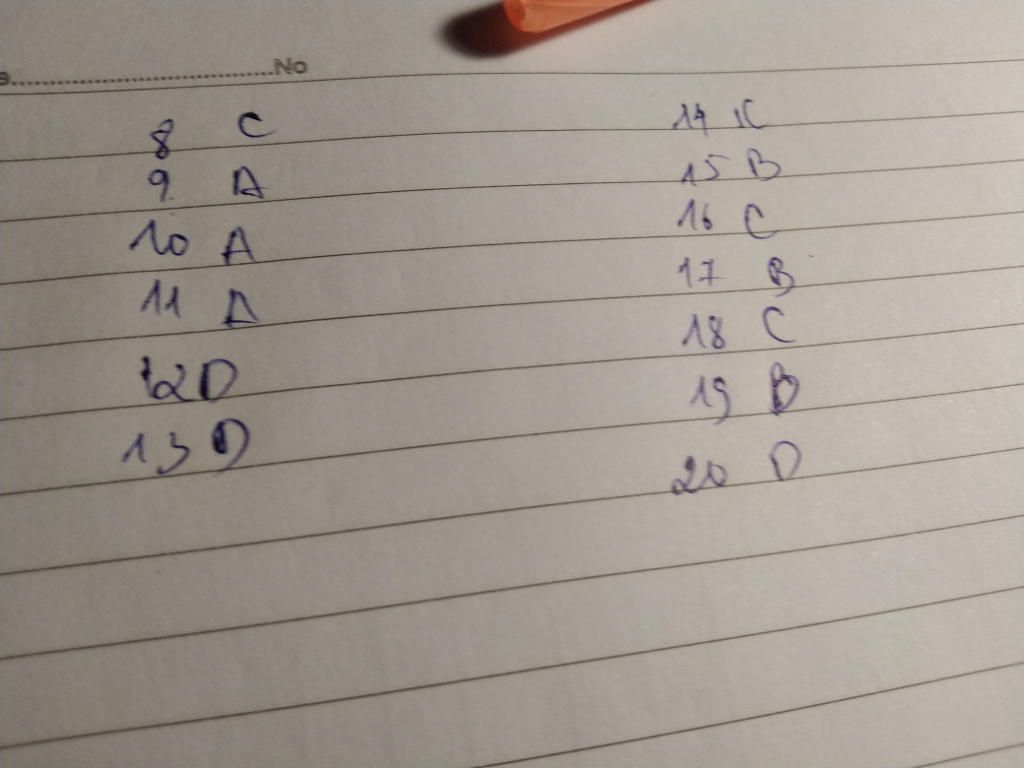 No
8 C
9 A
10 A
11 A
12 D
13 D
14 C
15 B
16 C
17 B
18 C
19 B
20 D